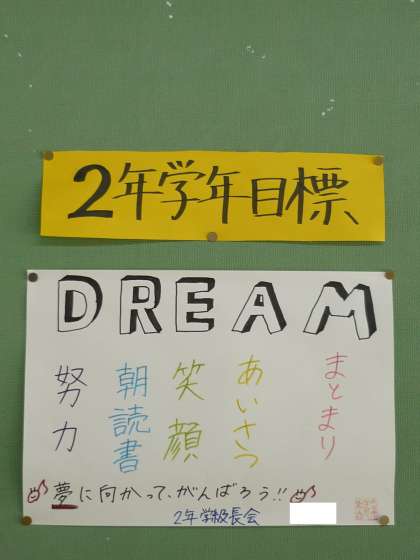 2年学年目標
DREAM
努力
朝読書
笑顔
あいさつ
まとまり
夢に向かって、がんばろう!!
2年学級長会